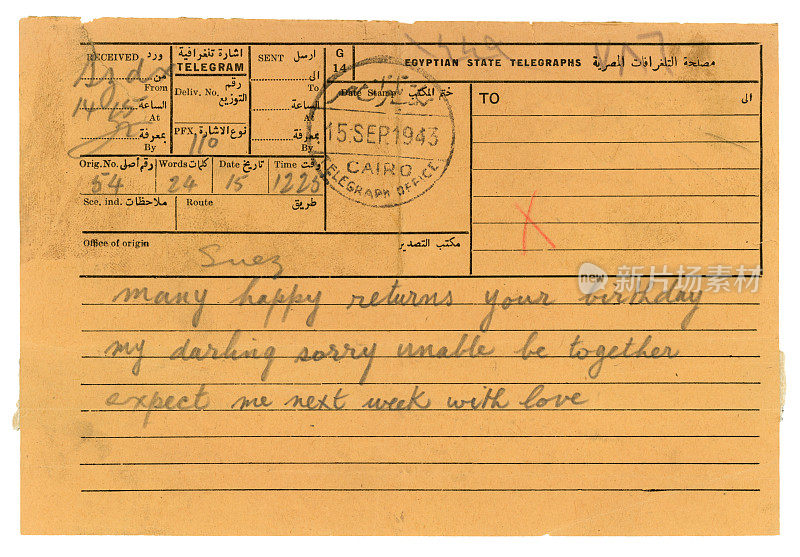 RECEIVED ورد
من
From
14 15 الساعة
At
بمعرفة
By
اشارة تلغرافية
TELEGRAM
رقم
Deliv. No. التوزيع
PFX. نوع الاشارة
110
SENT ارسل
الى
To
الساعة
At
بمعرفة
By
G
14
EGYPTIAN STATE TELEGRAPHS مصلحة التلغرافات المصرية
Date Stamp ختم المكتب
15 SEP. 1943
CAIRO
TELEGRAPH OFFICE
TO الى
X
Orig. No. رقم أصلى Words كلمات Date تاريخ Time وقت
54 24 15 1225
Sce. ind. ملاحظات Route طريق
Office of origin مكتب التصدير
Suez
many happy returns your birthday
my darling sorry unable be together
expect me next week with love
new 新片场素材